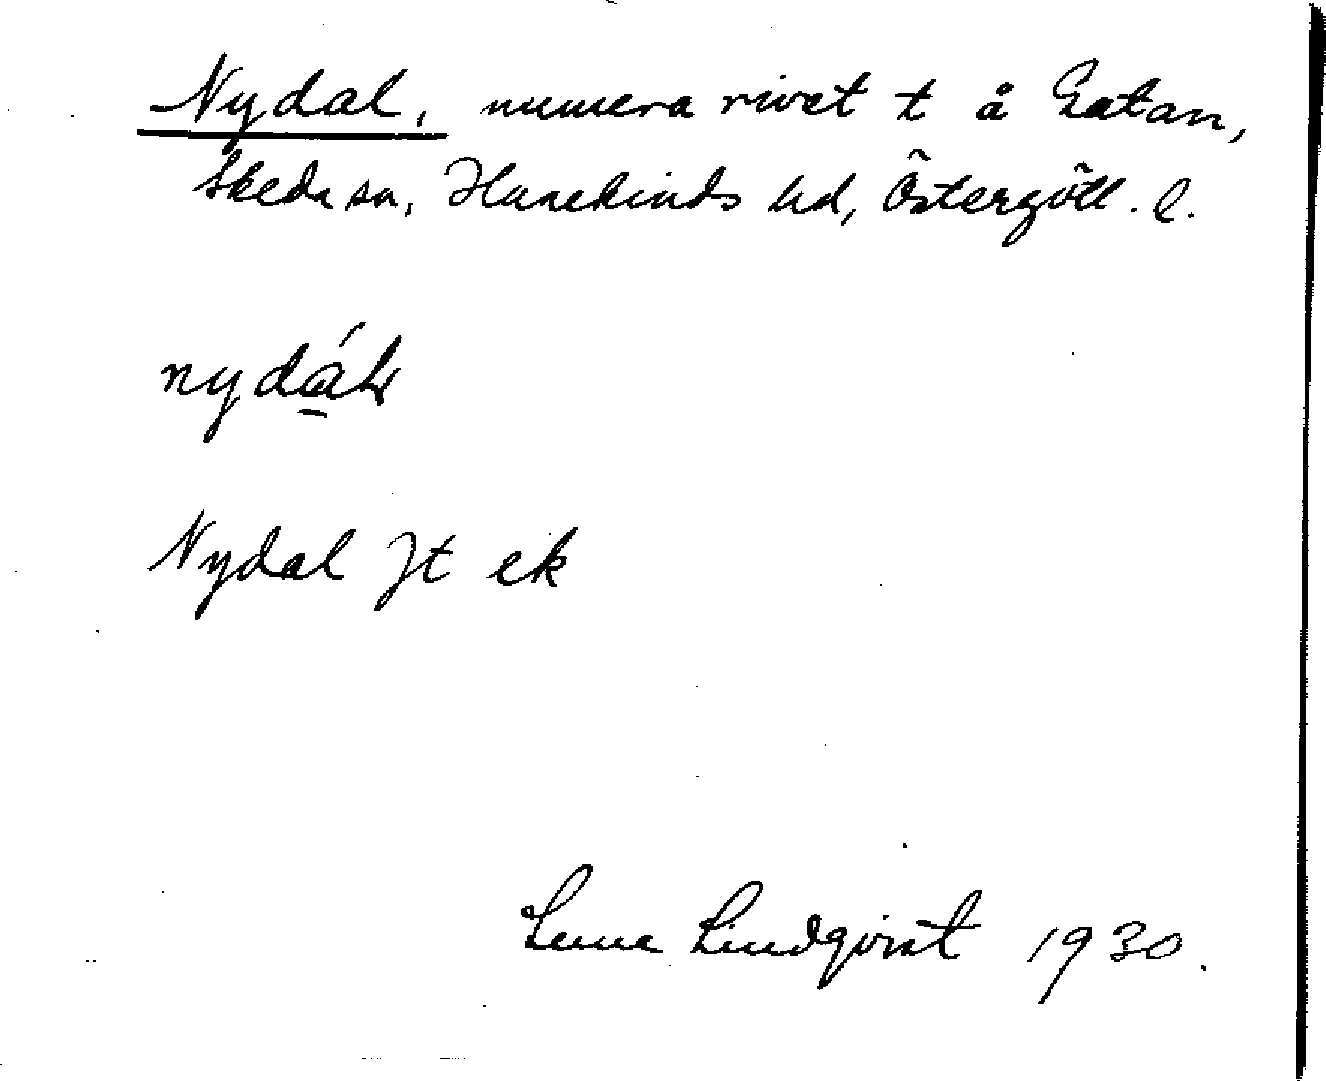 Nydal, numera rivet t å Gatan,
Skeda sn, Hanekinds hd, Östergötl. l.
nydál
Nydal Jt ek
Sune Lindqvist 1930.